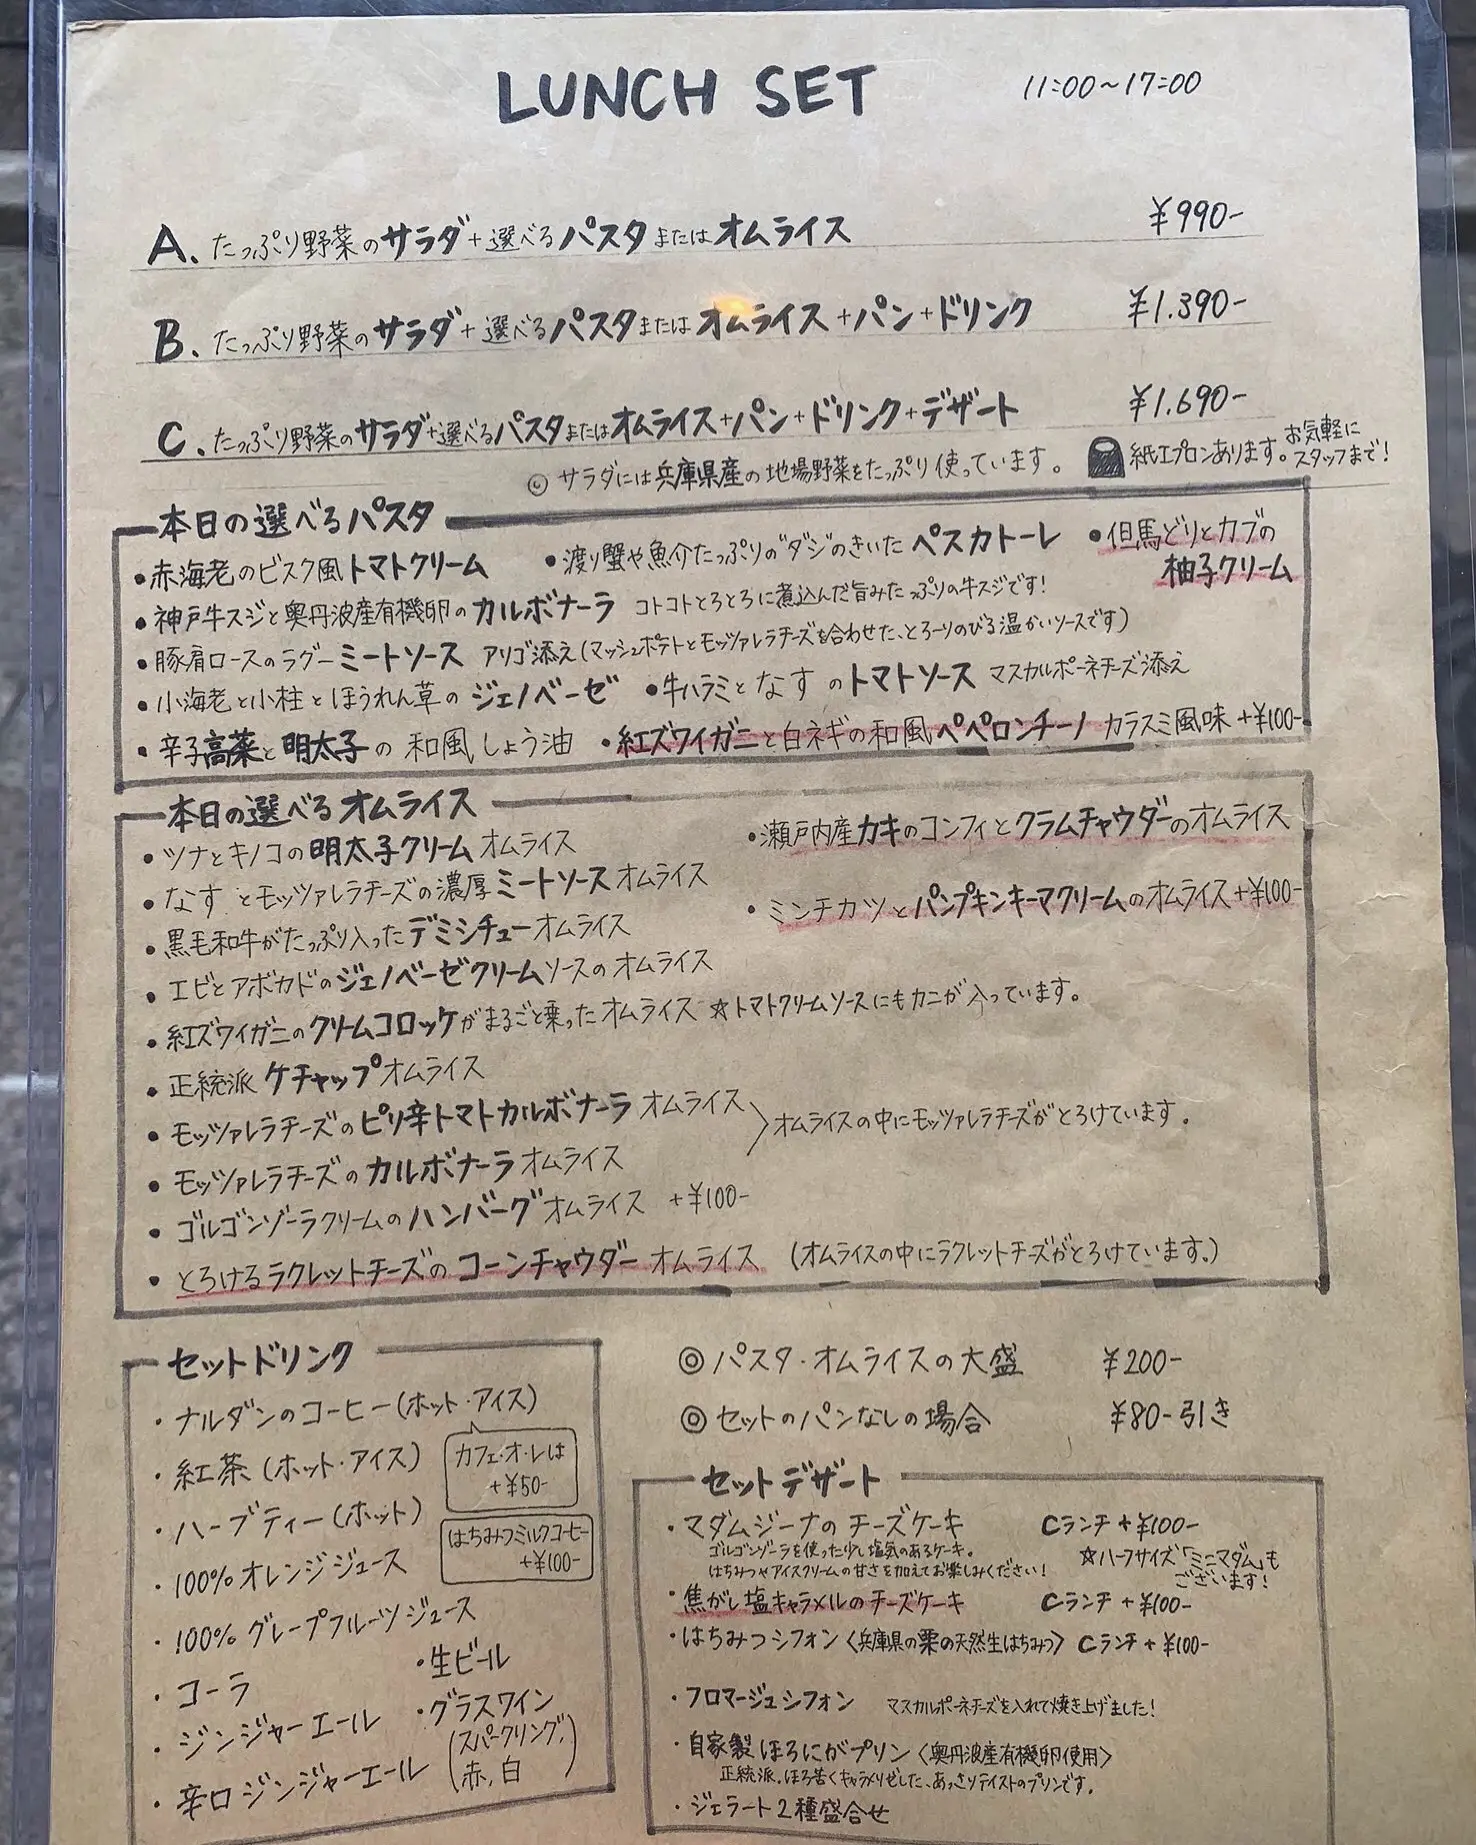 LUNCH SET 11:00～17:00
A. たっぷり野菜のサラダ+選べるパスタまたはオムライス ¥990-
B. たっぷり野菜のサラダ+選べるパスタまたはオムライス+パン+ドリンク ¥1.390-
C. たっぷり野菜のサラダ+選べるパスタまたはオムライス+パン+ドリンク+デザート ¥1.690-
◎ サラダには兵庫県産の地場野菜をたっぷり使っています。
紙エプロンあります。お気軽に
スタッフまで!
本日の選べるパスタ
・赤海老のビスク風トマトクリーム ・渡り蟹や魚介たっぷりの"ダシ"のきいたペスカトーレ ・但馬どりとカブの
柚子クリーム
・神戸牛スジと奥丹波産有機卵のカルボナーラ コトコトとろとろに煮込んだ旨みたっぷりの牛スジです!
・豚肩ロースのラグーミートソース アリゴ添え(マッシュポテトとモッツァレラチーズを合わせた、とろーりのびる温かいソースです)
・小海老と小柱とほうれん草のジェノベーゼ ・牛ハラミとなすのトマトソース マスカルポーネチーズ添え
・辛子高菜と明太子の和風しょう油 ・紅ズワイガニと白ネギの和風ペペロンチーノ カラスミ風味+¥100-
本日の選べるオムライス
・ツナとキノコの明太子クリームオムライス
・瀬戸内産カキのコンフィとクラムチャウダーのオムライス
・なすとモッツァレラチーズの濃厚ミートソースオムライス
・ミンチカツとパンプキンキーマクリームのオムライス+¥100-
・黒毛和牛がたっぷり入ったデミシチューオムライス
・エビとアボカドのジェノベーゼクリームソースのオムライス
・紅ズワイガニのクリームコロッケがまるごと乗ったオムライス ☆トマトクリームソースにもカニが入っています。
・正統派ケチャップオムライス
・モッツァレラチーズのピリ辛トマトカルボナーラオムライス
オムライスの中にモッツァレラチーズがとろけています。
・モッツァレラチーズのカルボナーラオムライス
・ゴルゴンゾーラクリームのハンバーグオムライス +¥100-
・とろけるラクレットチーズのコーンチャウダーオムライス (オムライスの中にラクレットチーズがとろけています。)
セットドリンク
・ナルダンのコーヒー(ホット・アイス)
カフェ・オ・レは
+¥50-
・紅茶(ホット・アイス)
・ハーブティー(ホット)
はちみつミルクコーヒー
+¥100-
・100%オレンジジュース
・100%グレープフルーツジュース
・コーラ
・ジンジャーエール
・辛口ジンジャーエール
・生ビール
・グラスワイン
(スパークリング,
赤,白)
◎ パスタ・オムライスの大盛 ¥200-
◎ セットのパンなしの場合 ¥80-引き
セットデザート
・マダムジーナのチーズケーキ Cランチ+¥100-
ゴルゴンゾーラを使った少し塩気のあるケーキ。
はちみつやアイスクリームの甘さを加えてお楽しみください!
☆ハーフサイズ「ミニマダム」も
ございます!
・焦がし塩キャラメルのチーズケーキ Cランチ+¥100-
・はちみつシフォン〈兵庫県の栗の天然生はちみつ〉 Cランチ+¥100-
・フロマージュシフォン マスカルポーネチーズを入れて焼き上げました!
・自家製ほろにがプリン〈奥丹波産有機卵使用〉
正統派。ほろ苦くキャラメリゼした、あっさりテイストのプリンです。
・ジェラート2種盛合せ